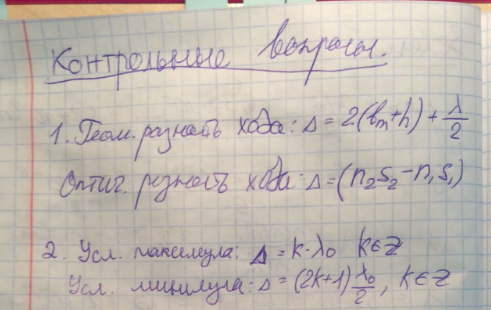 Контрольные вопросы.
1. Геом. разность хода: Δ = 2(bₘ+h) + λ/2
Оптич. разность хода: Δ = (n₂S₂ - n₁S₁)
2. Усл. максимума: Δ = k·λ₀ k∈Z
Усл. минимума: Δ = (2k+1) λ₀/2, k∈Z